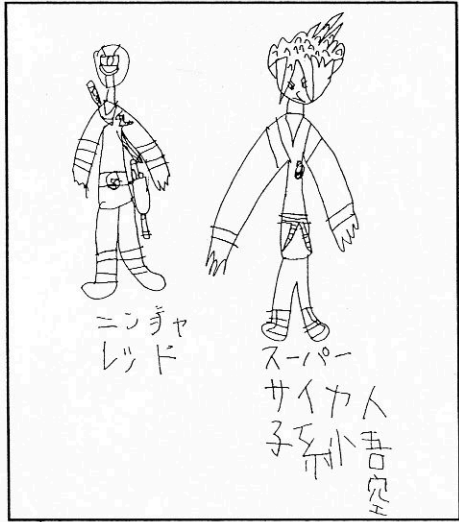 ニンヂャ
レッド
スーパー
サイヤ人
孫悟空